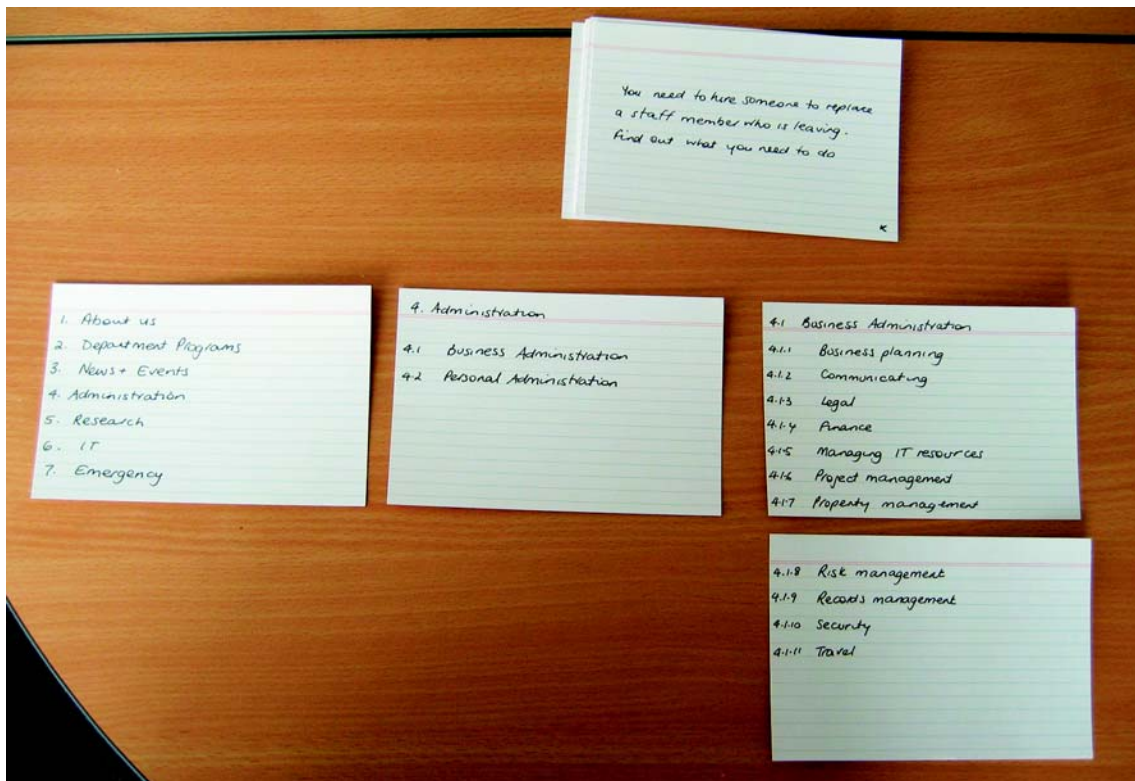 You need to hire someone to replace
a staff member who is leaving.
Find out what you need to do
K
1. About us
2. Department Programs
3. News + Events
4. Administration
5. Research
6. IT
7. Emergency
4. Administration
4.1 Business Administration
4.2 Personal Administration
4.1 Business Administration
4.1.1 Business planning
4.1.2 Communicating
4.1.3 Legal
4.1.4 Finance
4.1.5 Managing IT resources
4.1.6 Project management
4.1.7 Property management
4.1.8 Risk management
4.1.9 Records management
4.1.10 Security
4.1.11 Travel